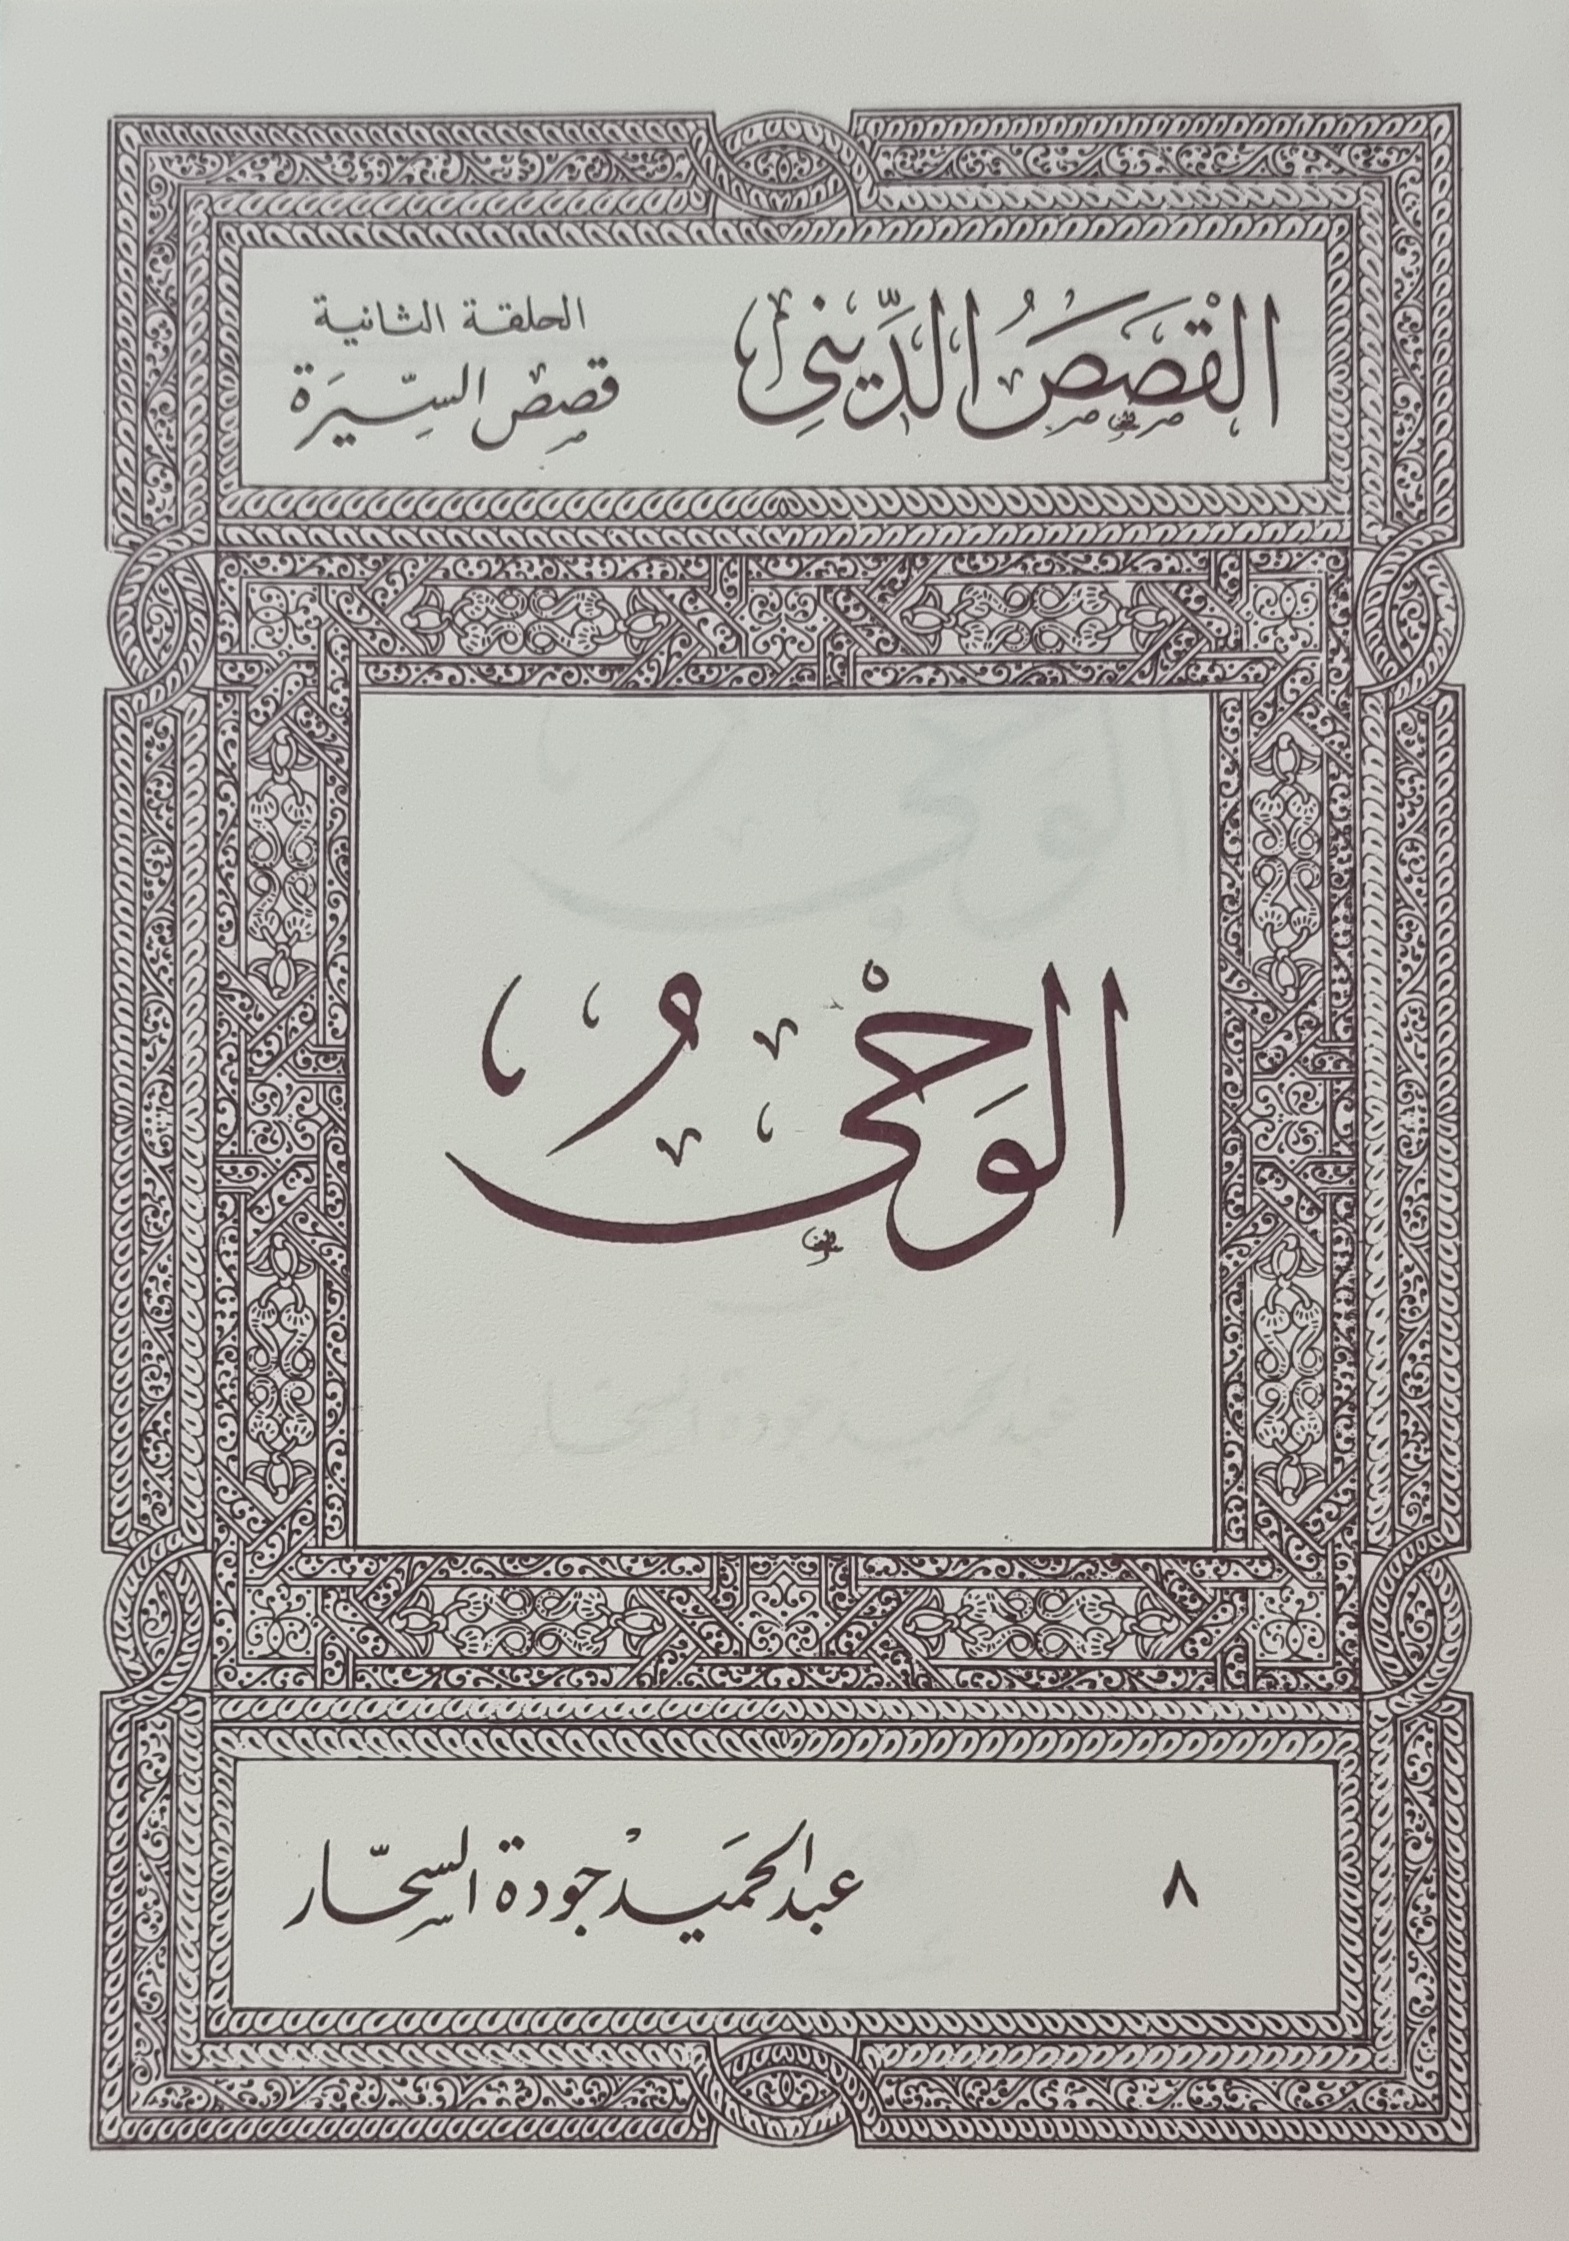 القَصَصُ الدِّينِى
الحلقة الثانية
قصص السِّيرَة
الوَحْىُ
٨
عبد الحميد جودة السحّار